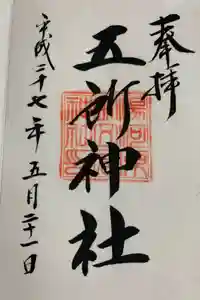 奉拝
五所神社
平成二十七年五月二十一日